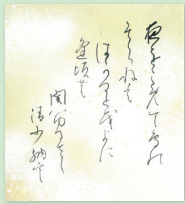 夜をこめて鳥の
そらねは
はかるともよに
逢坂の
関はゆるさし
清少納言